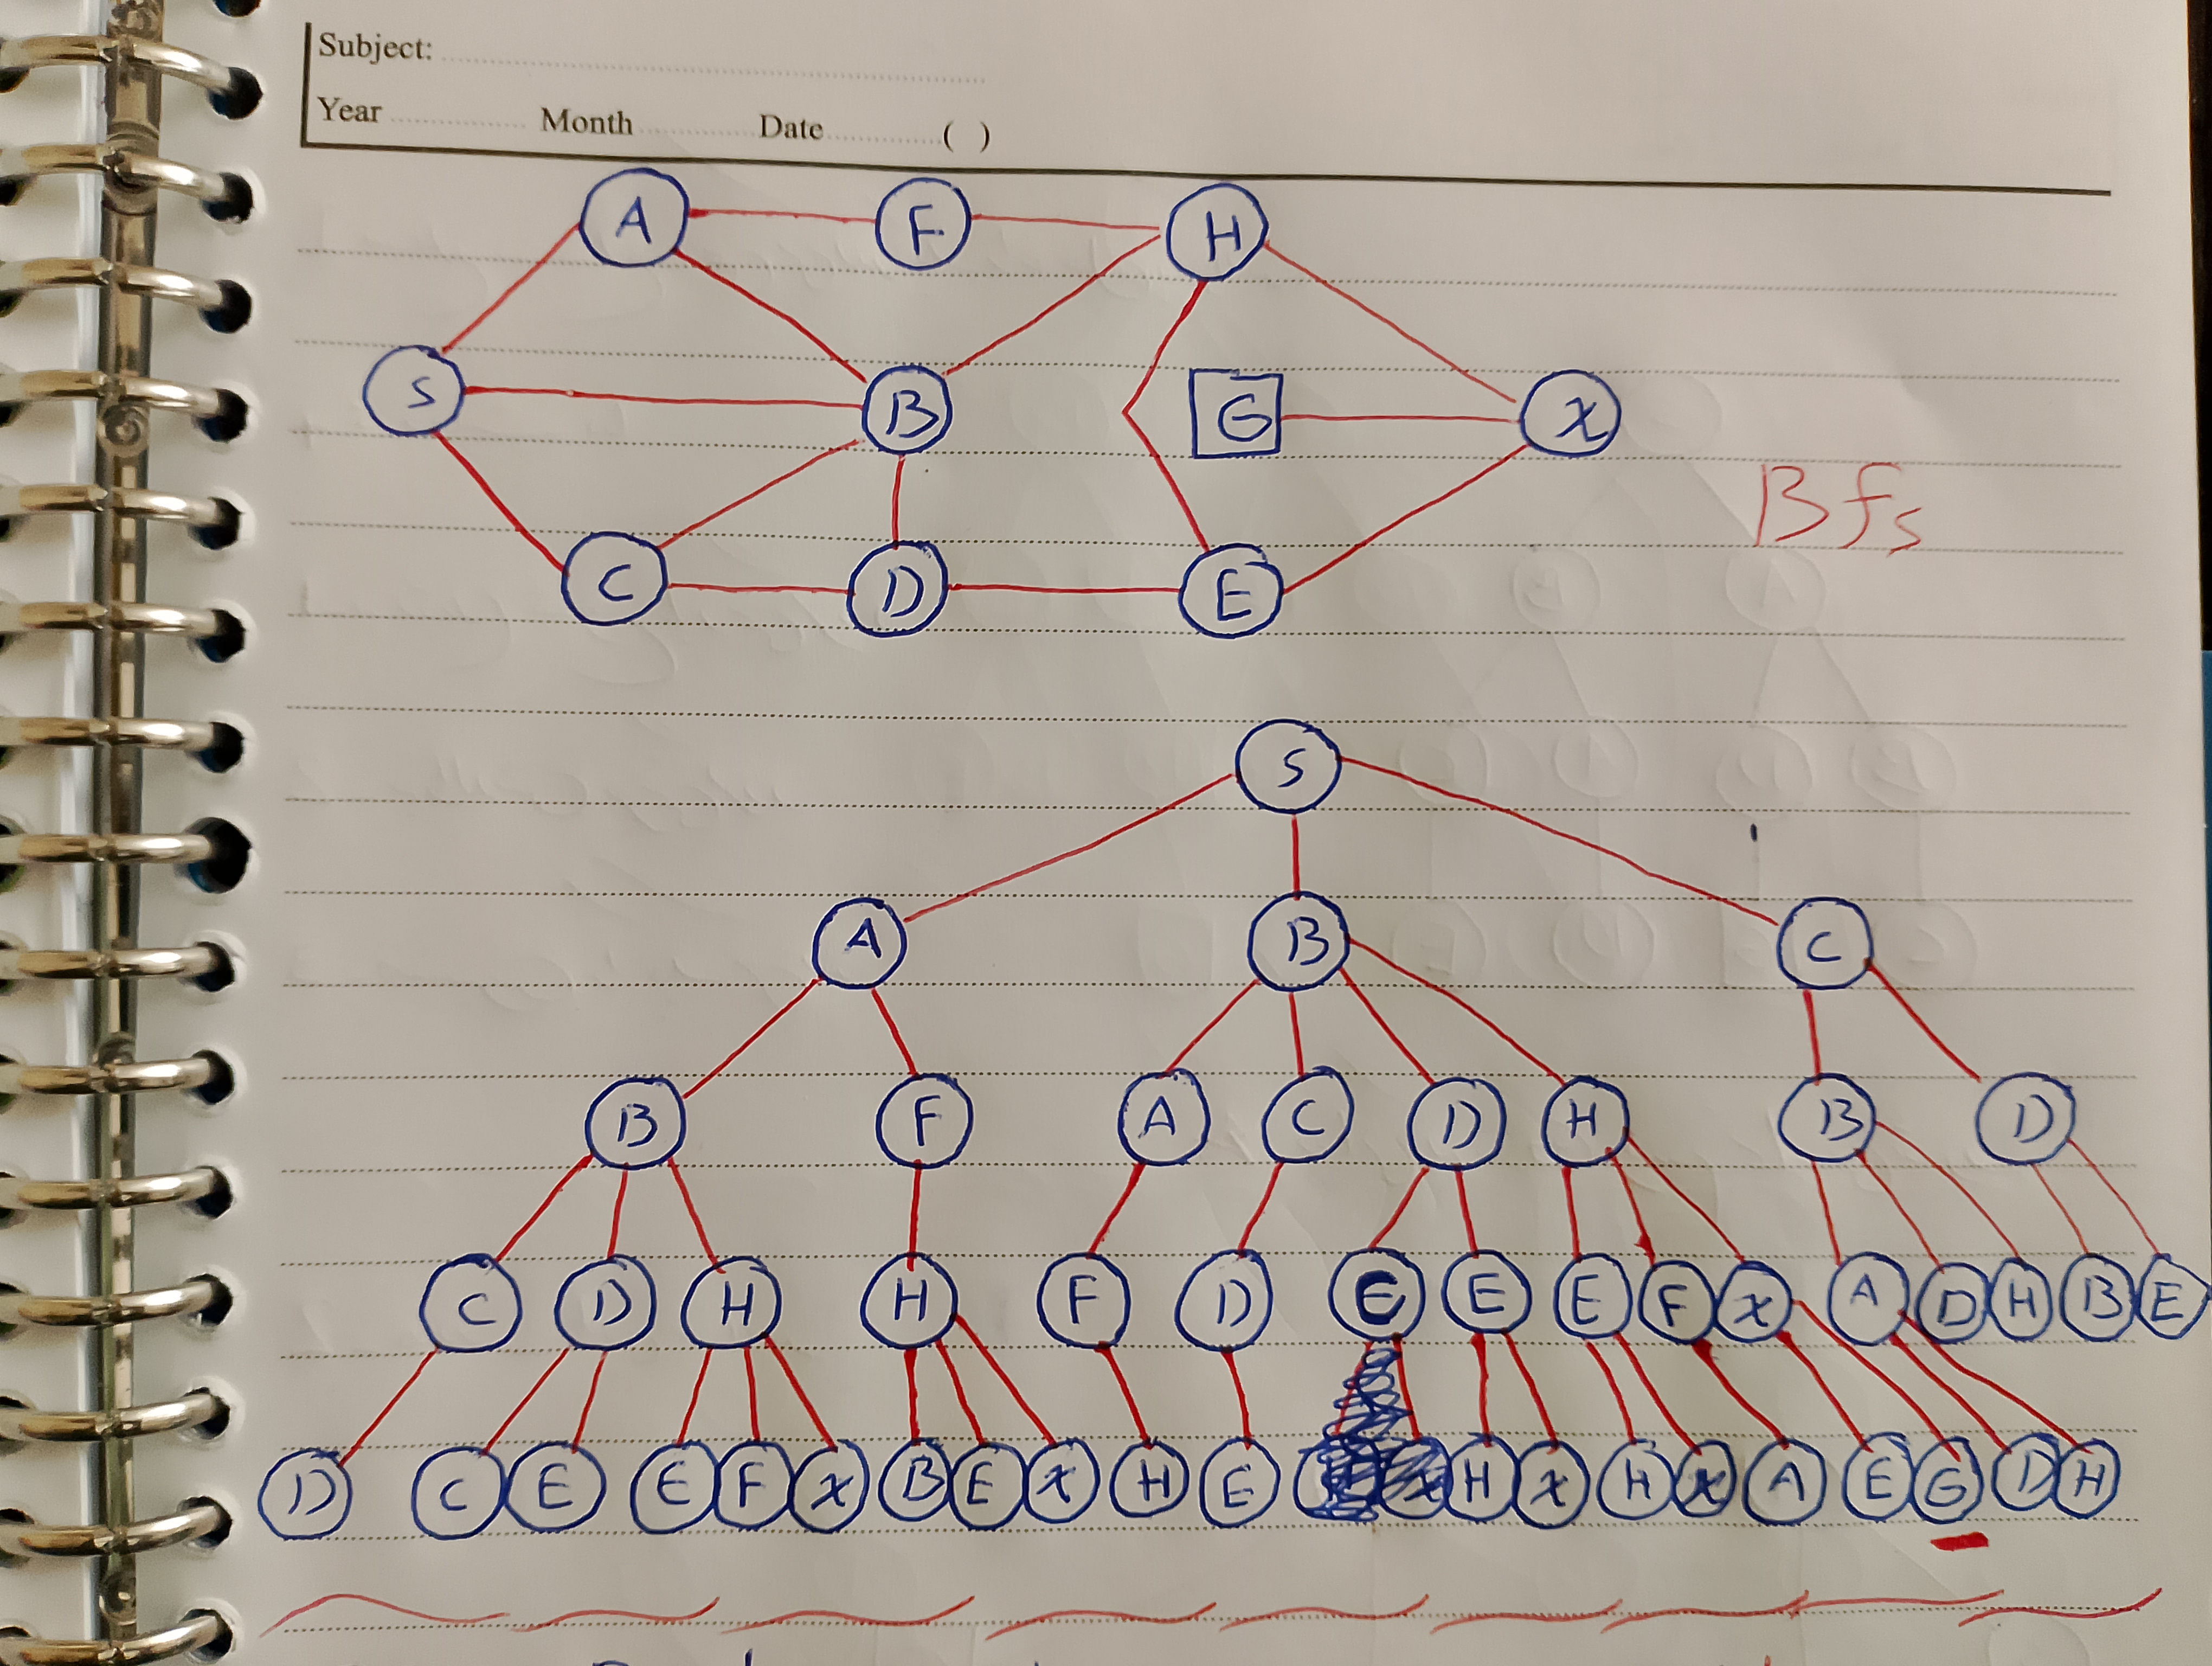 Subject:
Year Month Date ( )
A F H
S B G X
Bfs
C D E
S
A B C
B F A C D H B D
C D H H F D C E E F X A D H B E
D C E E F X B E X H E H X H X A E G D H